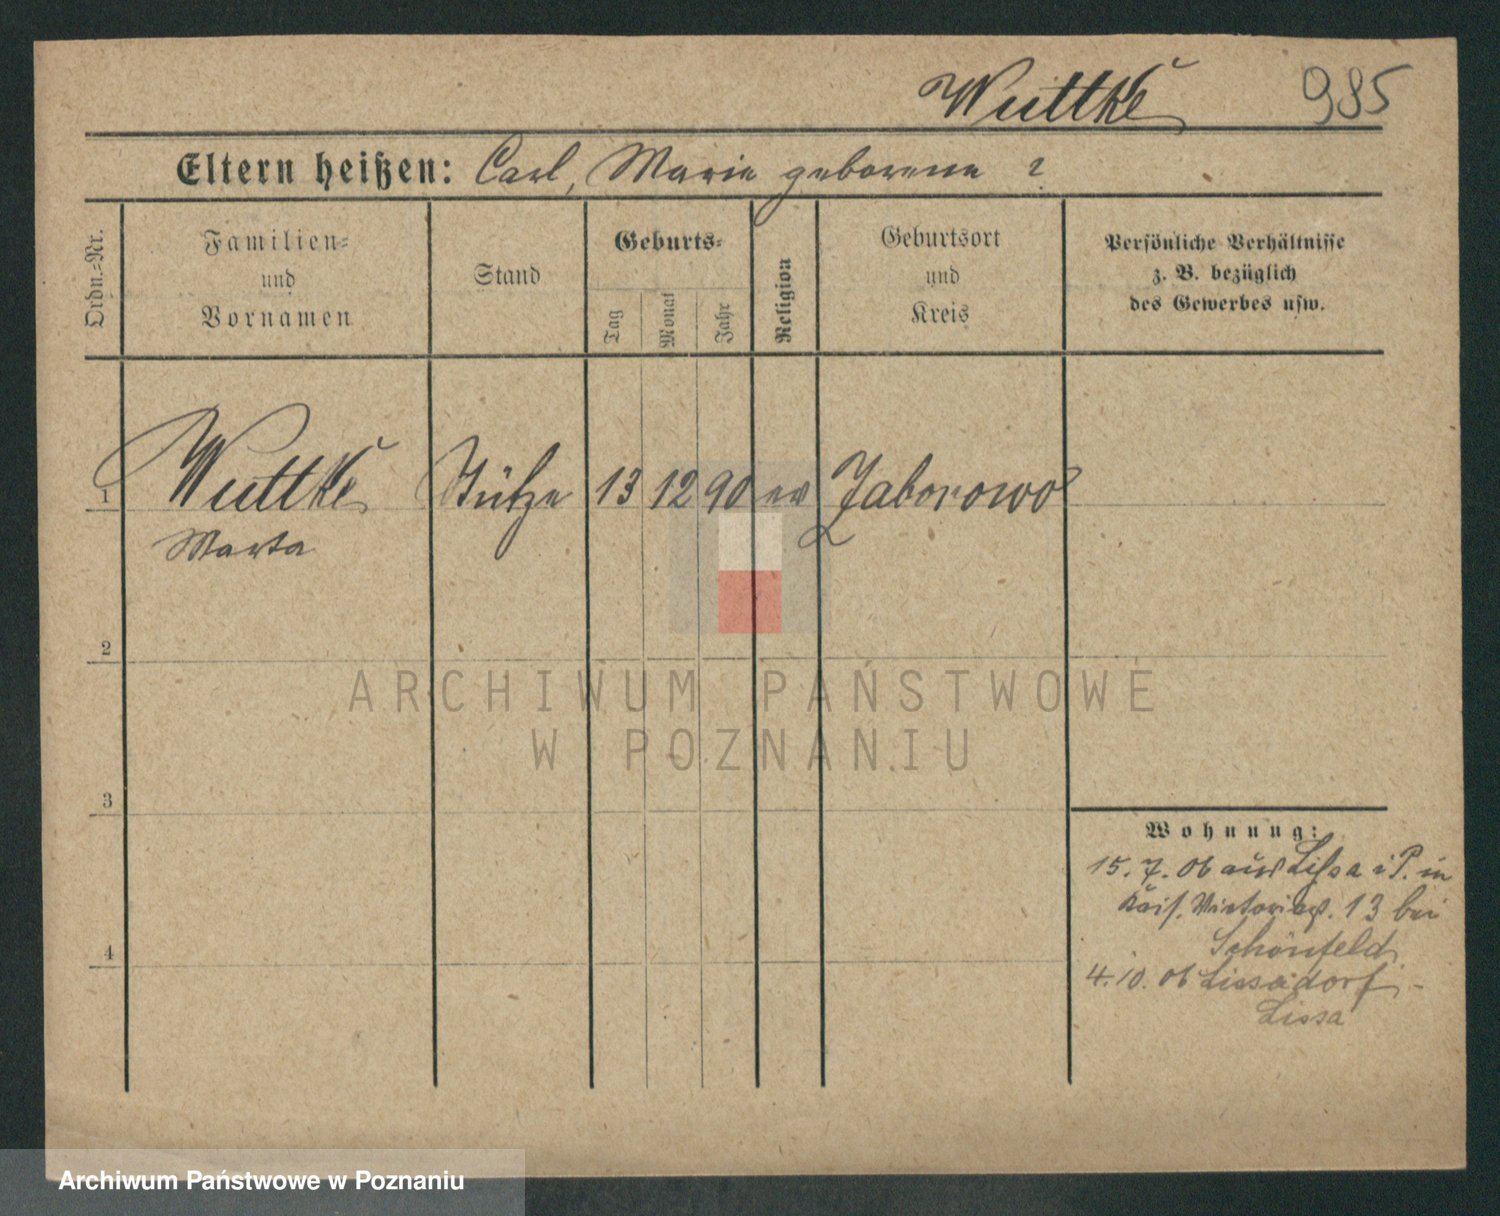 Wuttke 985
Eltern heißen: Carl, Marie geborene ?
Ordn.=Nr.
Familien=
und
Vornamen
Stand
Geburts=
Tag
Monat
Jahr
Religion
Geburtsort
und
Kreis
Persönliche Verhältnisse
z. B. bezüglich
des Gewerbes usw.
1 Wuttke Stütze 13 12 90 ev Zaborowo
Marta
2
3
4
Wohnung:
15. 7. 06 aus Lissa i P. in
Kais. Victoriast. 13 bei
Schönfeld
4. 10. 06 Lissadorf -
Lissa
ARCHIWUM PAŃSTWOWE
W POZNANIU
Archiwum Państwowe w Poznaniu